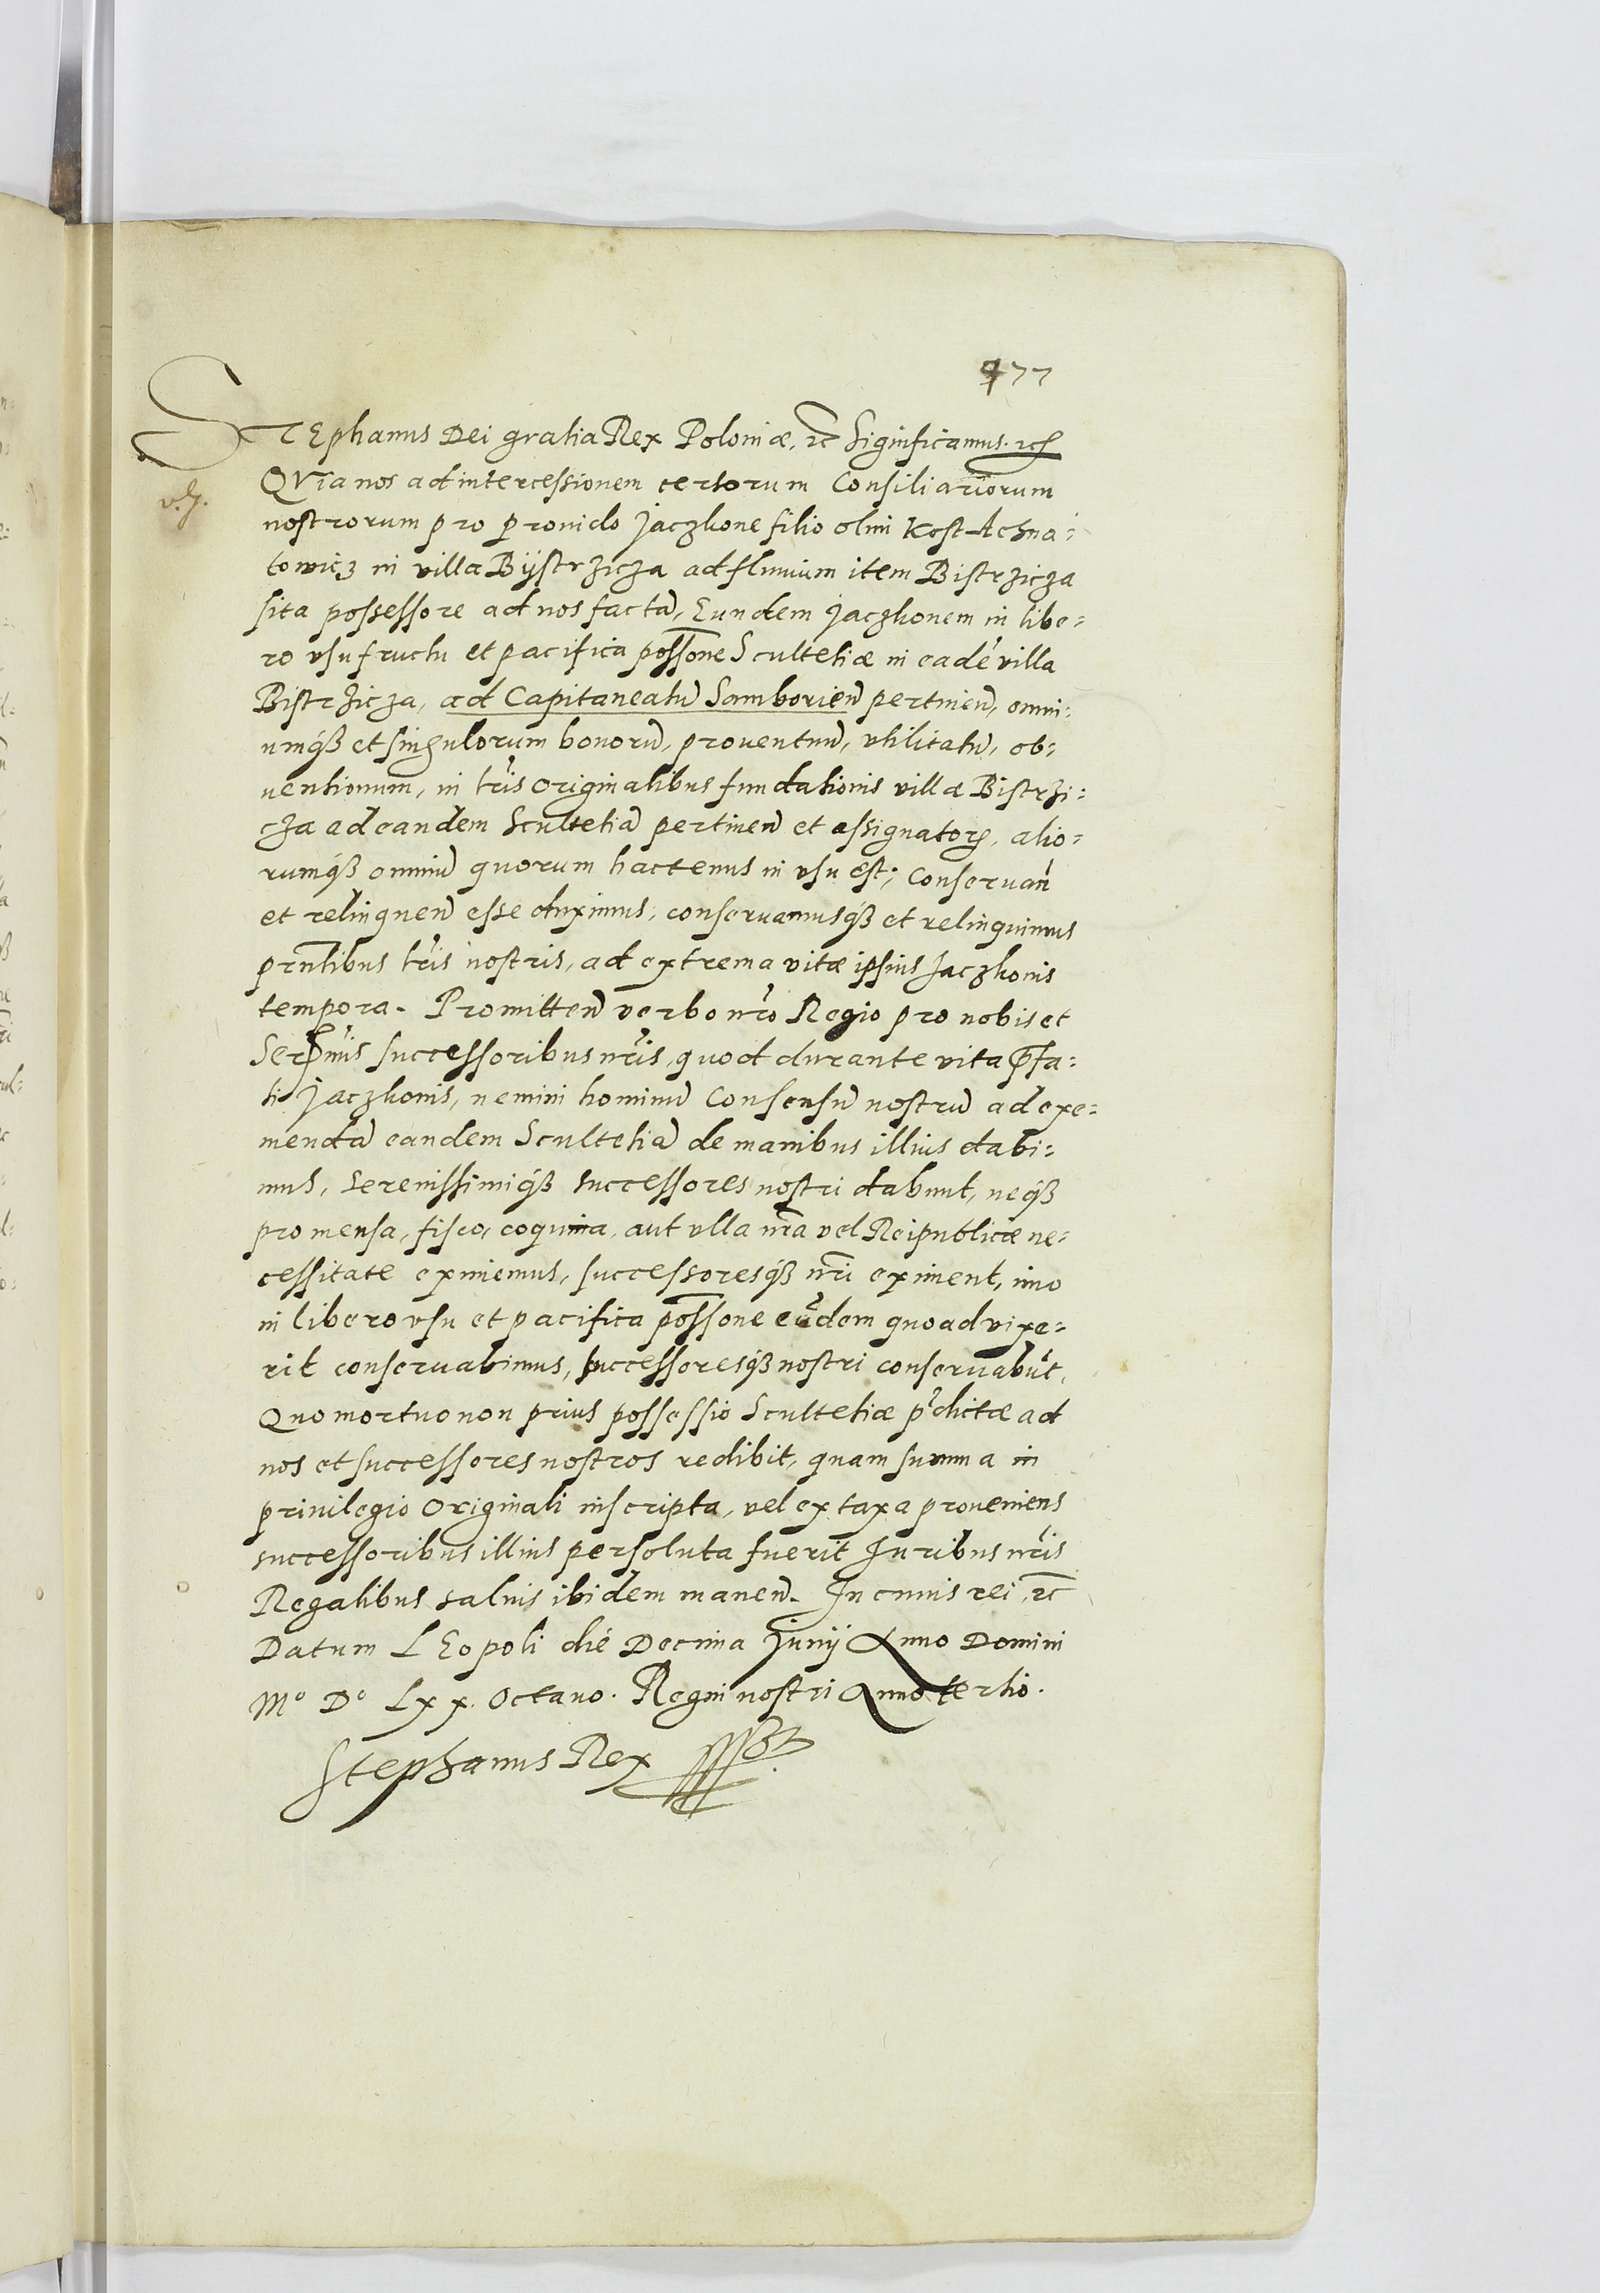 977
STEphanus Dei gratia Rex Poloniæ, rc Significamus. rc
v. g.
QVia nos ad intercessionem certorum Consiliariorum
nostrorum pro prouido Jaczkone filio olim Kost Achna=
towicz in villa Bijstrzicza ad fluuium item Bistrzicza
sita possessore ad nos factã, Eundem Jaczkonem in libe=
ro vsufructu et pacifica possone Scultetiæ in eadẽ villa
Bistrzicza, ad Capitaneatũ Samborieñ pertineñ, omni=
umqꝫ et singulorum bonorũ, prouentuũ, vtilitatũ, ob=
uentionum, in lr̃is originalibus fundationis villæ Bistrzi=
cza ad eandem Scultetiã pertineñ et assignatorꝫ, alio=
rumqꝫ omniũ quorum hactenus in vsu est; Conseruañ
et relinqueñ esse duximus, conseruamusqꝫ et relinquimus
pr̃ntibus lr̃is nostris, ad extrema vitæ ipsius Jaczkonis
tempora. Promitteñ verbo nr̃o Regio pro nobis et
Serẽmis successoribus nr̃is, quod durante vita p̃fa=
ti Jaczkonis, nemini hominũ Consensũ nostrũ ad exi=
mendã eandem Scultetiã de manibus illius dabi=
mus, Serenissimiqꝫ successores nostri dabunt, neqꝫ
pro mensa, fisco, coquina, aut vlla nr̃a vel Reipublicæ ne=
cessitate eximemus, successoresqꝫ nr̃i eximent, imo
in libero vsu et pacifica possone eũdem quoad vixe=
rit conseruabimus, successoresqꝫ nostri conseruabũt,
Quo mortuo non prius possessio Scultetiæ p̃dictæ ad
nos et successores nostros redibit, quam summa in
priuilegio Originali inscripta, vel ex taxa proueniens
successoribus illius persoluta fuerit Juribus nr̃is
Regalibus saluis ibidem maneñ. In cuius rei, rc
Datum LEopoli die Decima Junij Anno Domini
Mº Dº Lxx. Octauo. Regni nostri Anno tertio.
Stephanus Rex